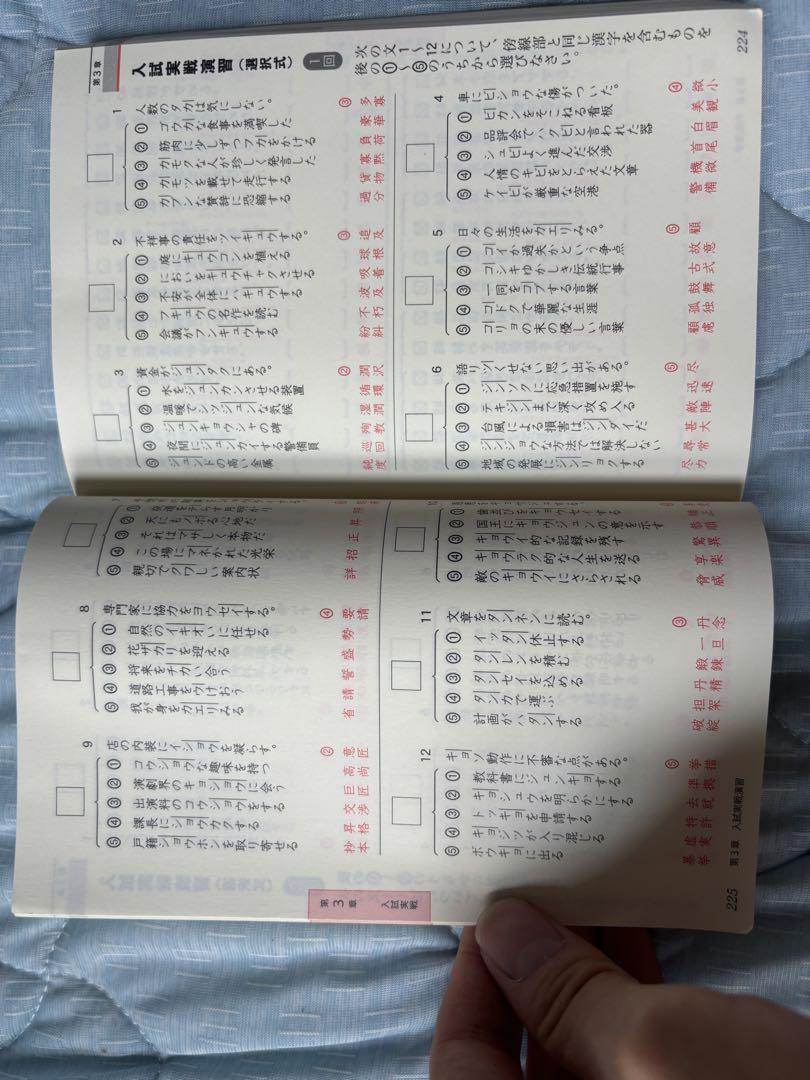 第3章
入試実戦演習(選択式) 1回
次の文1〜12について、傍線部と同じ漢字を含むものを
後の①〜⑤のうちから選びなさい。
1 人数のタカは気にしない。
① ゴウカな食事を満喫した
② 筋肉に少しずつフカをかける
③ カモクな人が珍しく発言した
④ カモツを載せて走行する
⑤ カブンな賛辞に恐縮する
③ 多寡
豪華
負荷
寡黙
貨物
過分
2 不祥事の責任をツイキュウする。
① 庭にキュウコンを植える
② においをキュウチャクさせる
③ 不安が全体にハキュウする
④ フキュウの名作を読む
⑤ 会議がフンキュウする
③ 追及
球根
吸着
波及
不朽
紛糾
3 黄金がジュンタクにある。
① 水をジュンカンさせる装置
② 温暖でシツジュンな気候
③ ジュンキョウシャの碑
④ 夜間にジュンカイする警備員
⑤ ジュンドの高い金属
② 潤沢
循環
湿潤
殉教
巡回
純度
4 車にビショウな傷がついた。
① ビカンをそこねる看板
② 品評会でハクビと言われた器
③ シュビよく進んだ交渉
④ 人情のキビをとらえた文章
⑤ ケイビが厳重な空港
④ 微小
美観
白眉
首尾
機微
警備
5 日々の生活をカエリみる。
① コイか過失かという争点
② コシキゆかしき伝統行事
③ 一同をコブする言葉
④ コドクで華麗な生涯
⑤ コリョの末の優しい言葉
⑤ 顧
故意
古式
鼓舞
孤独
顧慮
6 語りツくせない思い出がある。
① ジンソクに応急措置を施す
② テキジンまで深く攻め入る
③ 台風による損害はジンダイだ
④ ジンジョウな方法では解決しない
⑤ 地域の発展にジンリョクする
⑤ 尽
迅速
敵陣
甚大
尋常
尽力
224
② 天にもノボる心地だ
③ それはマサしく本物だ
④ この場にマネかれた光栄
⑤ 親切でクワしい案内状
昇
正
招
詳
8 専門家に協力をヨウセイする。
① 自然のイキオいに任せる
② 花ザカリを迎える
③ 将来をチカい合う
④ 道路工事をウけおう
⑤ 我が身をカエリみる
④ 要請
勢
盛
誓
請
省
9 店の内装にイショウを凝らす。
① コウショウな趣味を持つ
② 演劇界のキョショウに会う
③ 出演料のコウショウをする
④ 課長にショウカクする
⑤ 戸籍ショウホンを取り寄せる
② 意匠
高尚
巨匠
交渉
昇格
抄本
① 歯並びをキョウセイする
② 国王にキョウジュンの意を示す
③ キョウイ的な記録を残す
④ キョウラク的な人生を送る
⑤ 敵のキョウイにさらされる
恭順
驚異
享楽
脅威
11 文章をタンネンに読む。
① イッタン休止する
② タンレンを積む
③ タンセイを込める
④ タンカで運ぶ
⑤ 計画がハタンする
③ 丹念
一旦
鍛錬
丹精
担架
破綻
12 キョソ動作に不審な点がある。
① 教科書にジュンキョする
② キョシュウを明らかにする
③ トッキョを申請する
④ キョジツが入り混じる
⑤ ボウキョに出る
⑤ 挙措
準拠
去就
特許
虚実
暴挙
第3章
入試実戦
225 第3章 入試実戦演習